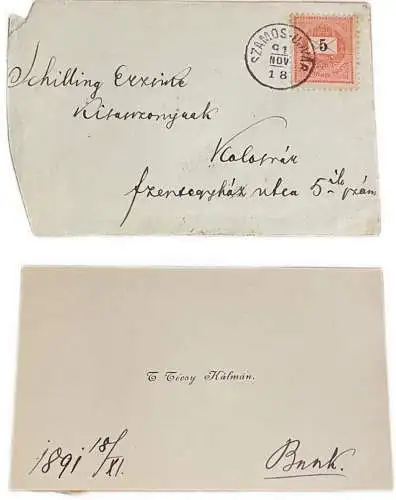 SZAMOS-UJVÁR
91
NOV
18
5
Schilling Erzsike
Kisasszonynak
Kolosvár
szentegyház utca 5-ik szám
T. Técsy Kálmán.
1891 18/XI.